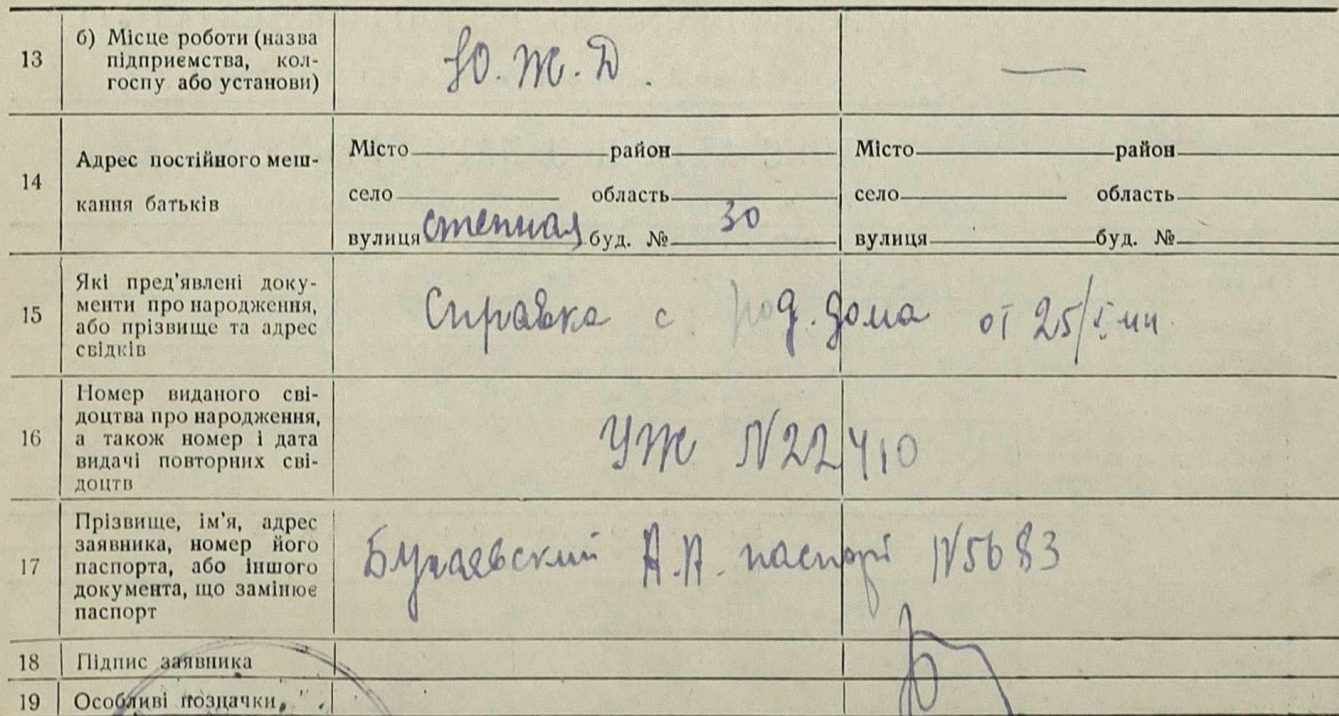 13 б) Місце роботи (назва
підприємства, кол-
госпу або установи)
Ю. Ж. Д. —
14 Адрес постійного меш-
кання батьків
Місто район Місто район
село область село область
вулиця степная буд. № 30 вулиця буд. №
15 Які пред'явлені доку-
менти про народження,
або прізвище та адрес
свідків
Справка с род. дома от 25/
16 Номер виданого сві-
доцтва про народження,
а також номер і дата
видачі повторних сві-
доцтв
УЖ №22410
17 Прізвище, ім'я, адрес
заявника, номер його
паспорта, або іншого
документа, що замінює
паспорт
А.А. паспорт №5683
18 Підпис заявника
19 Особливі позначки